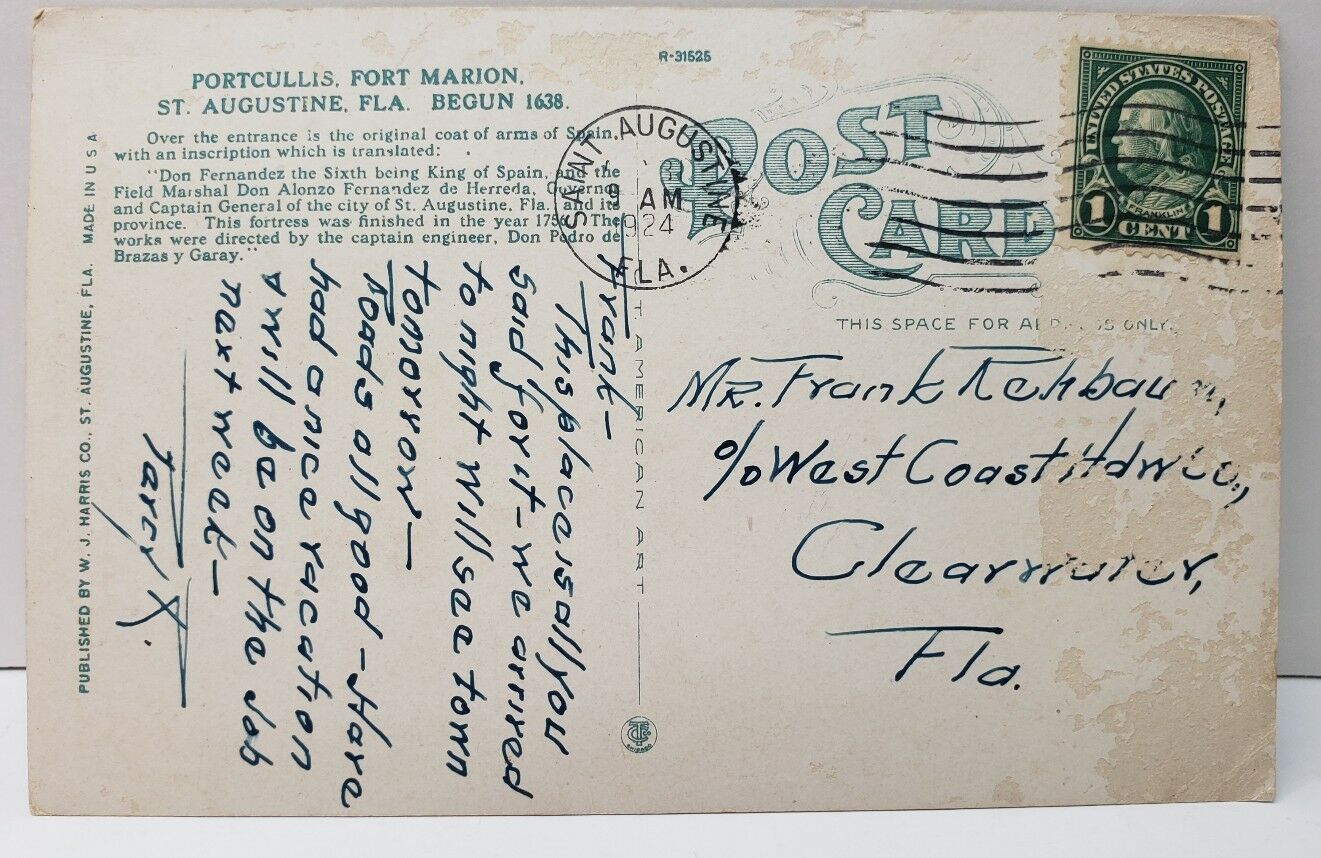 PORTCULLIS, FORT MARION,
ST. AUGUSTINE, FLA. BEGUN 1638.
Over the entrance is the original coat of arms of Spain,
with an inscription which is translated:
"Don Fernandez the Sixth being King of Spain, and the
Field Marshal Don Alonzo Fernandez de Herreda, Governo
and Captain General of the city of St. Augustine, Fla. and its
province. This fortress was finished in the year 1756. The
works were directed by the captain engineer, Don Pedro de
Brazas y Garay."
PUBLISHED BY W. J. HARRIS CO., ST. AUGUSTINE, FLA. MADE IN U S A
R-31525
POST
CARD
SAINT AUGUSTINE
9 AM
1924
FLA.
UNITED STATES POSTAGE
FRANKLIN
1 CENT 1
THIS SPACE FOR ONLY.
T AMERICAN ART
CHICAGO
Frank-
This place is all you
said for it - we arrived
to night will see town
tomorrow-
Roads all good - Have
had a nice vacation
& will be on the job
next week-
Percy K.
Mr. Frank
c/o West Coast Hdw Co.,
Clearwater,
Fla.